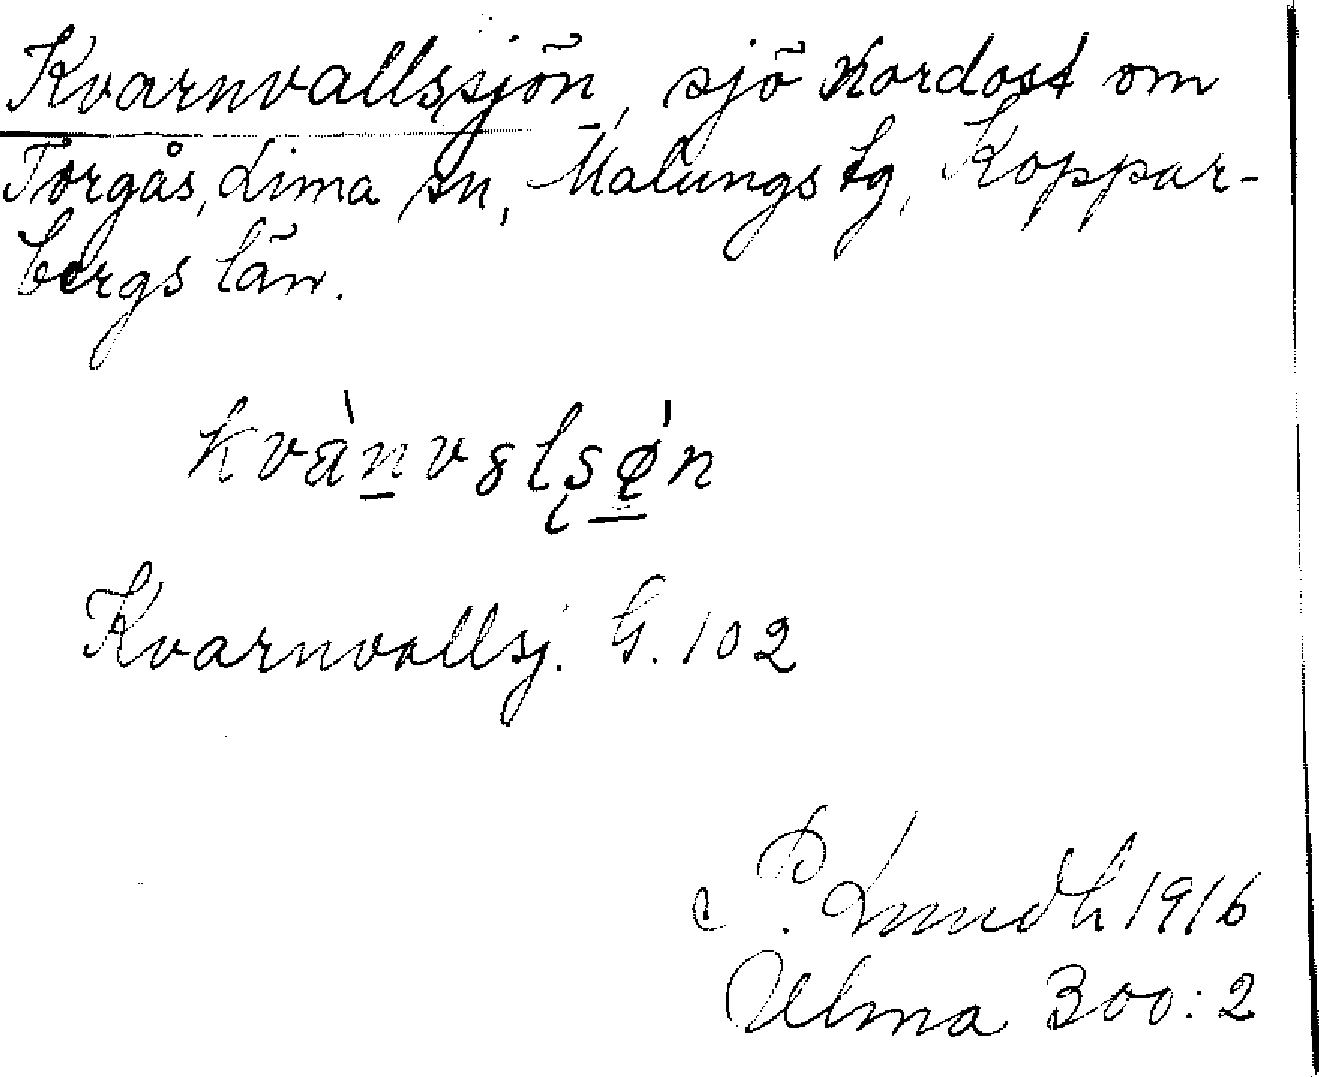 Kvarnvallssjön, sjö nordost om
Torgås, Lima sn, Malungs tg, Koppar-
bergs län.
Kvarnvallsj. G. 102
P. Lundh 1916
Ulma 300:2